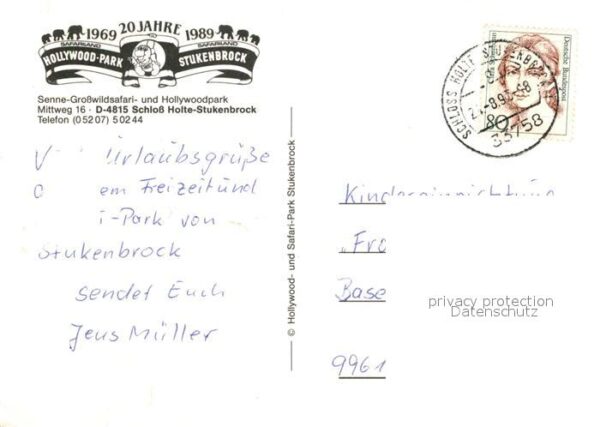 1969 20 JAHRE 1989
SAFARILAND SAFARILAND
HOLLYWOOD-PARK STUKENBROCK
Senne-Großwildsafari- und Hollywoodpark
Mittweg 16 · D-4815 Schloß Holte-Stukenbrock
Telefon (05207) 50244
V Urlaubsgrüße
em Freizeitund
i-Park von
Stukenbrock
sendet Euch
Jens Müller
© Hollywood- und Safari-Park Stukenbrock
Deutsche Bundespost
80
SCHLOSS HOLTE-STUKENBROCK
33758
Kindereinrichtung
"Fro
Base
9961
privacy protection
Datenschutz